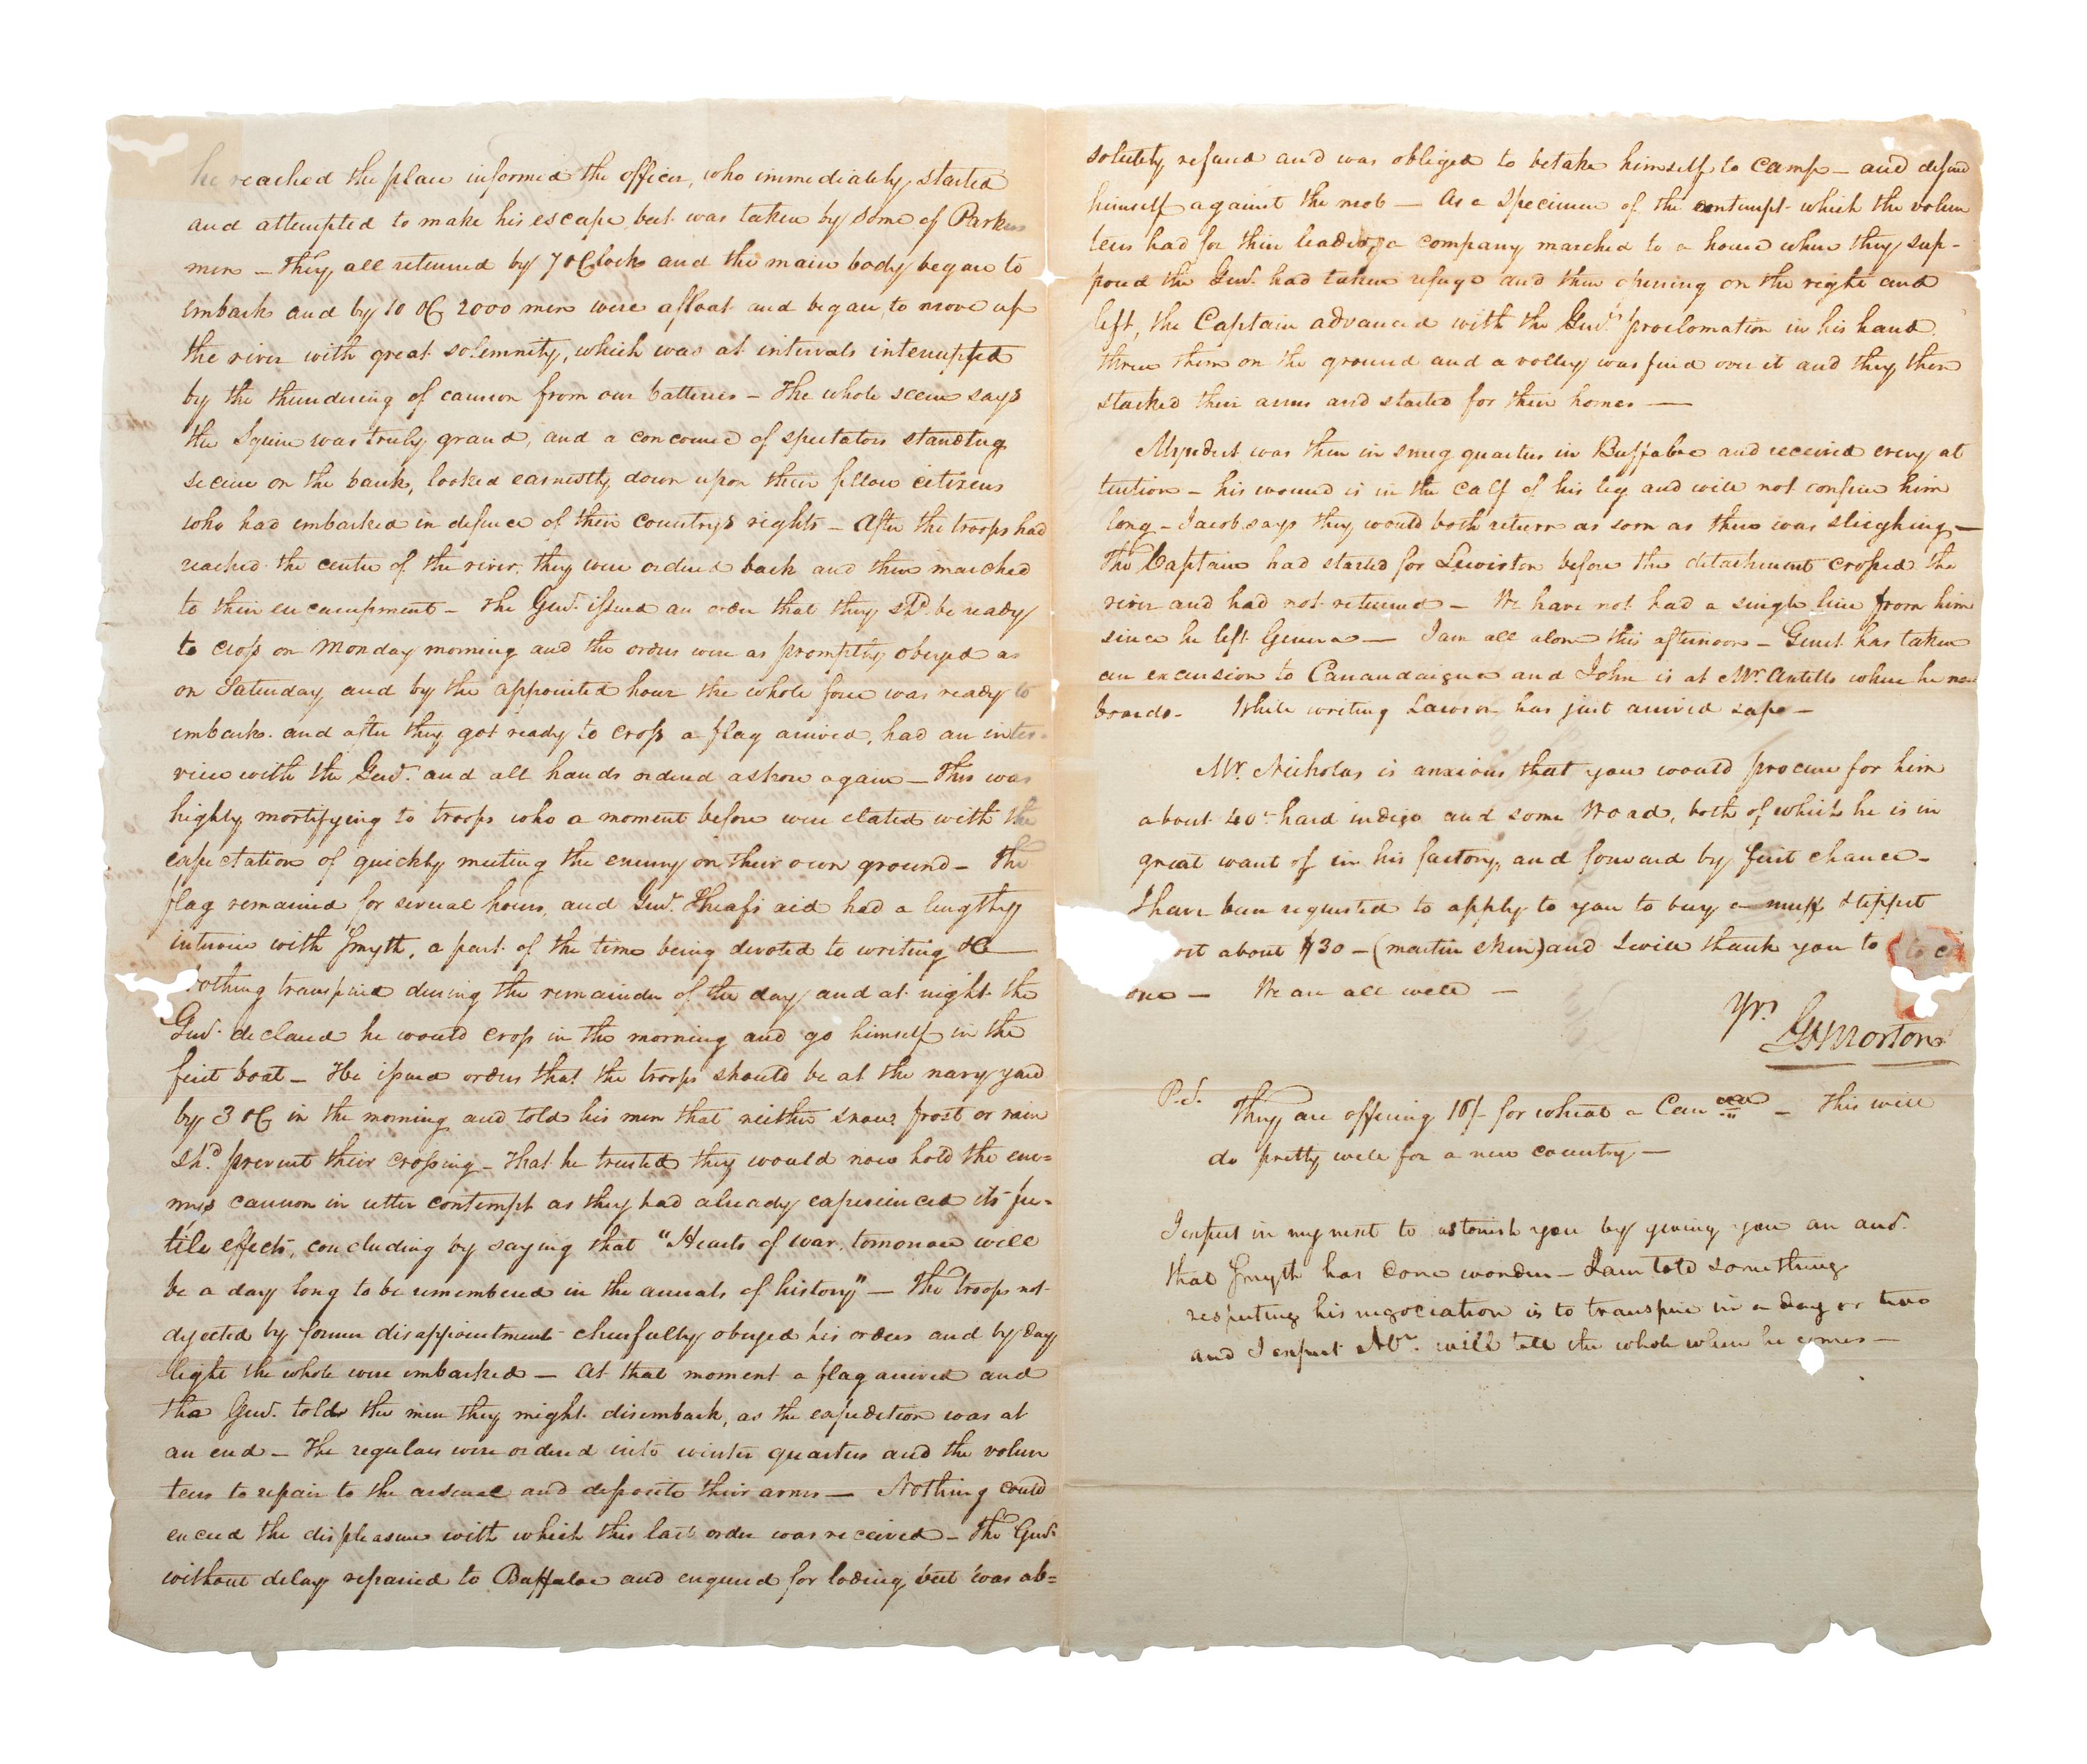 he reached the place informed the officer, who immediately started
and attempted to make his escape but was taken by some of Parkers
men – They all returned by 7 oClock and the main body began to
embark and by 10 oC 2000 men were afloat and began to move up
the river with great solemnity, which was at intervals interrupted
by the thundering of cannon from our batteries – The whole scene says
the Squire was truly grand, and a concourse of spectators standing
secure on the bank, looked earnestly down upon their fellow citizens
who had embarked in defence of their countrys rights – After the troops had
reached the centre of the river, they were ordered back and then marched
to their encampment – The Genl. issued an order that they shd be ready
to cross on Monday morning and the orders were as promptly obeyed as
on Saturday and by the appointed hour the whole force was ready to
embark. and after they got ready to cross a flag arrived, had an inter-
view with the Genl. and all hands ordered ashore again – This was
highly mortifying to troops who a moment before were elated with the
expectation of quickly meeting the enemy on their own ground – The
flag remained for several hours, and Genl. Sheafs aid had a lengthy
interview with Smyth, a part of the time being devoted to writing &c –
Nothing transpired during the remainder of the day and at night the
Genl. declared he would cross in the morning and go himself in the
first boat – He issued orders that the troops should be at the navy yard
by 3 oC in the morning and told his men that neither snow, frost or rain
shd. prevent their crossing – that he trusted they would now hold the ene=
mys cannon in utter contempt as they had already experienced its fu=
tile effects, concluding by saying that "Hearts of war. tomorrow will
be a day long to be remembered in the annals of history" – The troops not
dejected by former disappointment chearfully obeyed his orders and by day
light the whole were embarked – At that moment a flag arrived and
the Genl. told the men they might disembark, as the expedition was at
an end – The regulars were ordered into winter quarters and the volun
teers to repair to the arsenal and deposite their arms – Nothing could
exceed the displeasure with which this last order was received – The Genl.
without delay repaired to Buffaloe and enquired for lodging but was ab=
solutely refused and was obliged to betake himself to camp – and defend
himself against the mob – As a specimen of the contempt which the volun
teers had for their leader, a company marched to a house where they sup-
posed the Genl. had taken refuge and then opening on the right and
left, the Captain advanced with the Genl.s proclamation in his hand,
threw them on the ground and a volley was fired over it and they then
stacked their arms and started for their homes –
was then in snug quarters in Buffaloe and received every at
tention – his wound is in the calf of his leg and will not confine him
long – Jacob says they would both return as soon as there was sleighing –
The Captain had started for Lewiston before the detachment crossed the
river and had not returned – We have not had a single line from him
since he left Geneva – I am all alone this afternoon – Genet has taken
an excursion to Canandaigua and John is at Mr. Antells where he now
boards – While writing Lawson has just arrived safe –
Mr. Nicholas is anxious that you would procure for him
about 40 hard indigo and some Woad, both of which he is in
great want of in his factory, and forward by first chance –
I have been requested to apply to you to buy a muff & tippet
about $30 – (martin skin) and I will thank you to
one – We are all well –
Yrs.
Morton
P.S. They are offering 10/ for wheat a Can – This will
do pretty well for a new country –
I expect in my next to astonish you by giving you an acct.
that Smyth has done wonders – I am told something
respecting his negociation is to transpire in a day or two
and I expect will tell the whole when he comes –